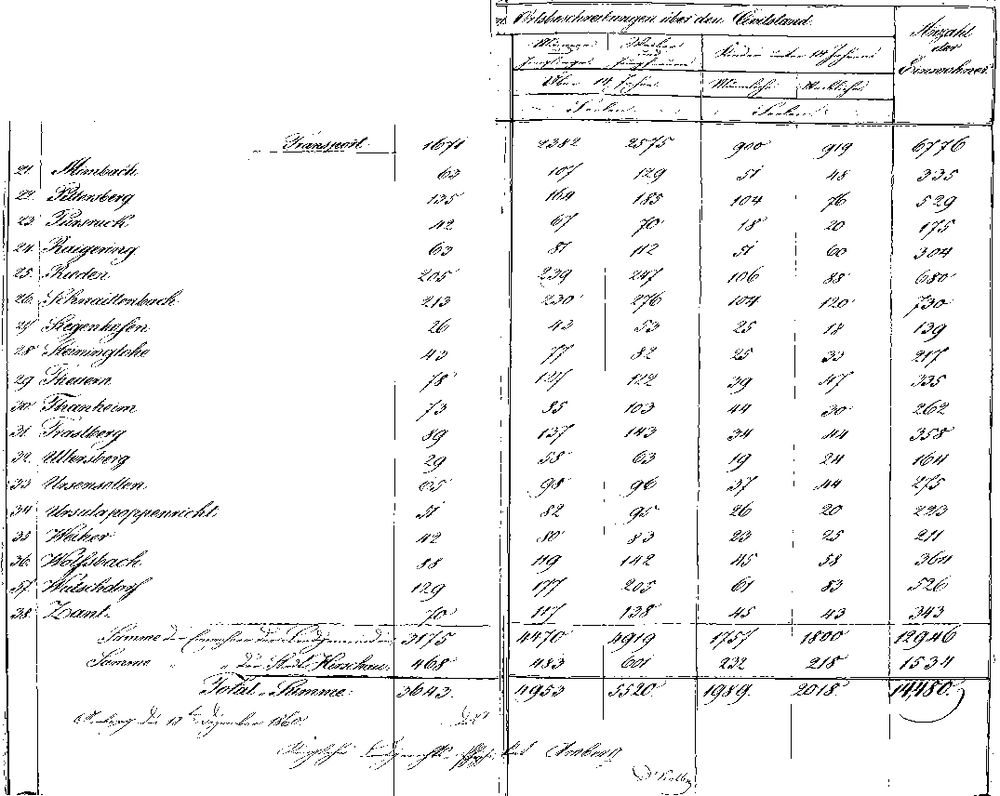 Ortsbeschreibungen über den Civilstand.
Anzahl der Einwohner.
Männer Jünglinge
Weiber und Jungfrauen
Kinder unter 14 Jahren
Über 14 Jahren
Männliche Weibliche
Seelen. Seelen.
Transport. 1671 2382 2575 900 919 6776
21. Mimbach. 63 107 129 51 48 335
22. Pittersberg 135 164 185 104 76 529
23. Pursruck 42 67 70 18 20 175
24. Raigering 63 81 112 51 60 304
25. Rieden. 205 239 247 106 88 680
26. Schnaittenbach. 213 230 276 104 120 730
27. Siegenhofen 26 43 53 25 18 139
28. Steiningloke 43 77 82 25 33 217
29. Theuern. 78 127 122 39 47 335
30. Thanheim 73 85 103 44 30 262
31. Traslberg 89 137 143 34 44 358
32. Ullersberg 29 58 63 19 24 164
33. Ursensollen. 65 98 96 37 44 275
34. Ursulapoppenricht. 51 82 95 26 20 223
35. Weiher 42 80 83 23 25 211
36. Wolfsbach. 88 119 142 45 58 364
37. Wutschdorf 129 177 205 61 83 526
38. Zant. 70 117 138 45 43 343
Summe der Einwohner der Landgemeinden 3175 4470 4919 1757 1800 12946
Summe " " der Stadt Hirschau. 468 483 601 232 218 1534
Total-Summe: 3643. 4953 5520. 1989. 2018. 14,480.
Amberg den 18ten Dezember 1860
Königliches Landgericht Amberg